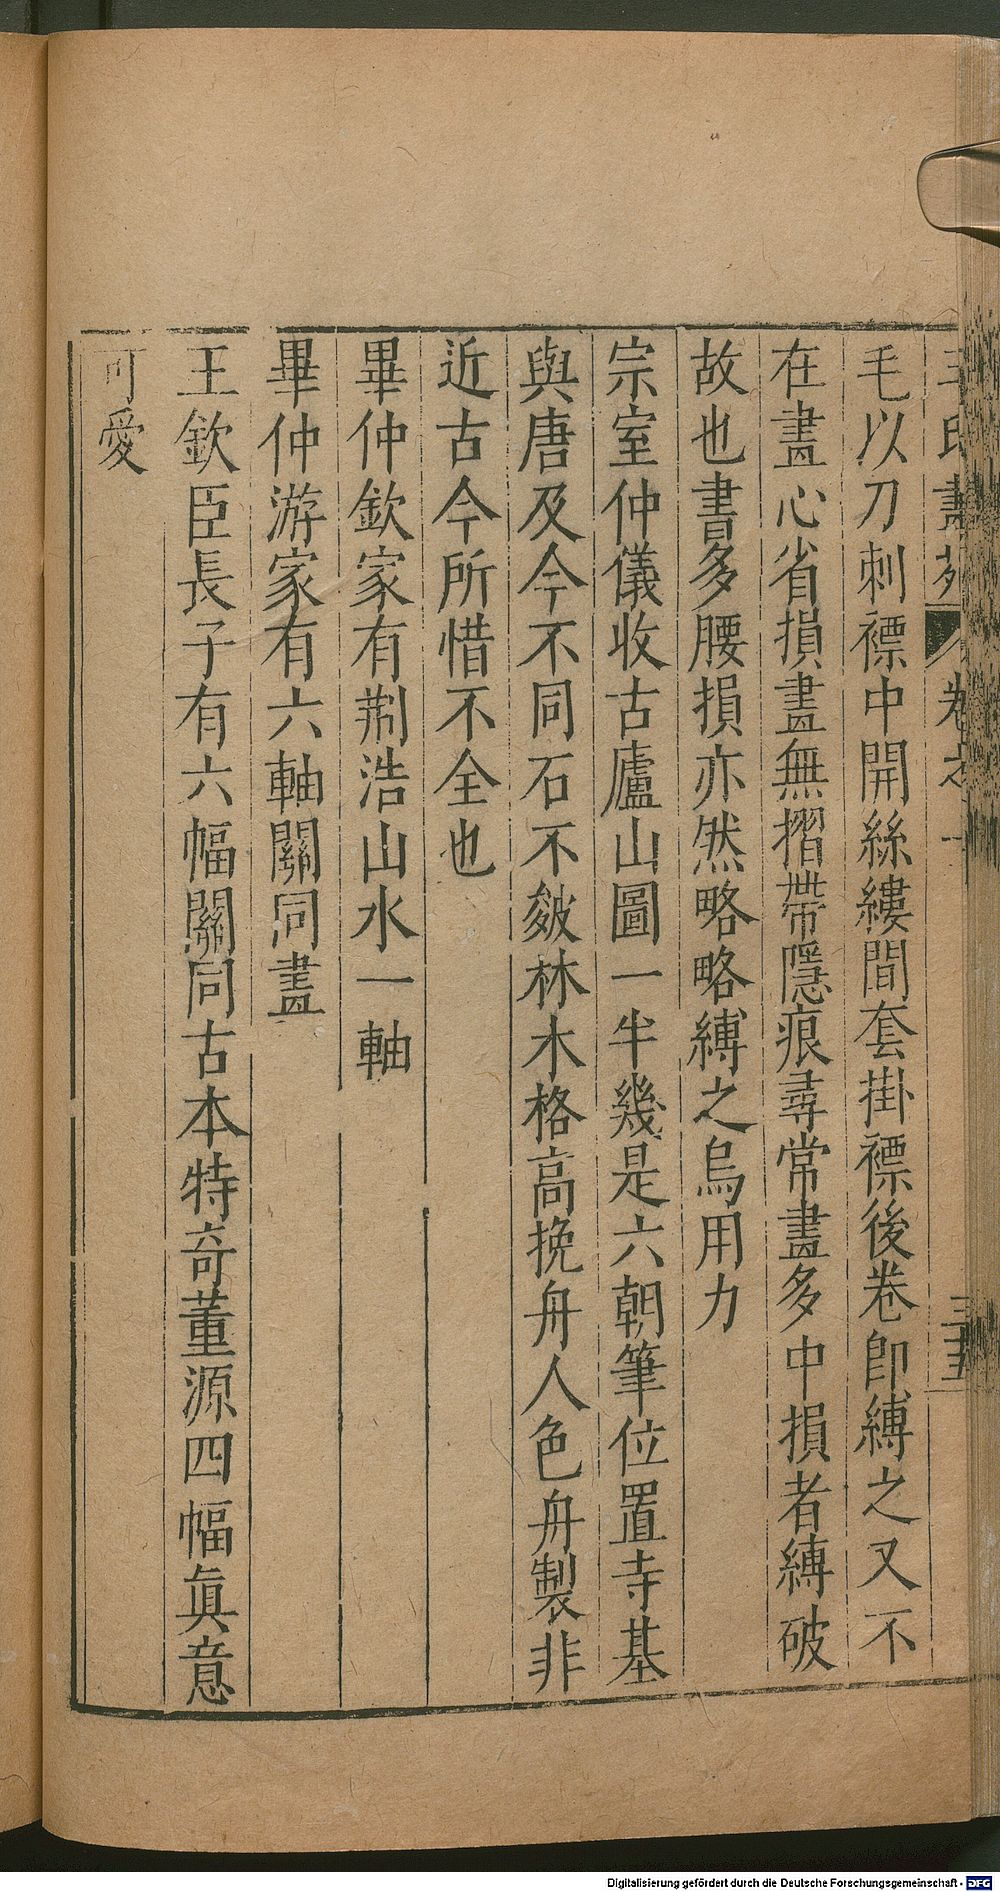 王氏畫苑 卷之一 三十五
毛以刀刺褾中開絲縷間套掛褾後卷卽縛之又不
在畫心省損畫無摺帶隱痕尋常畫多中損者縛破
故也書多腰損亦然略略縛之烏用力
宗室仲儀收古廬山圖一半幾是六朝筆位置寺基
與唐及今不同石不皴林木格高挽舟人色舟製非
近古今所惜不全也
畢仲欽家有荆浩山水一軸
畢仲游家有六軸關同畫
王欽臣長子有六幅關同古本特奇董源四幅眞意
可愛
Digitalisierung gefördert durch die Deutsche Forschungsgemeinschaft - DFG